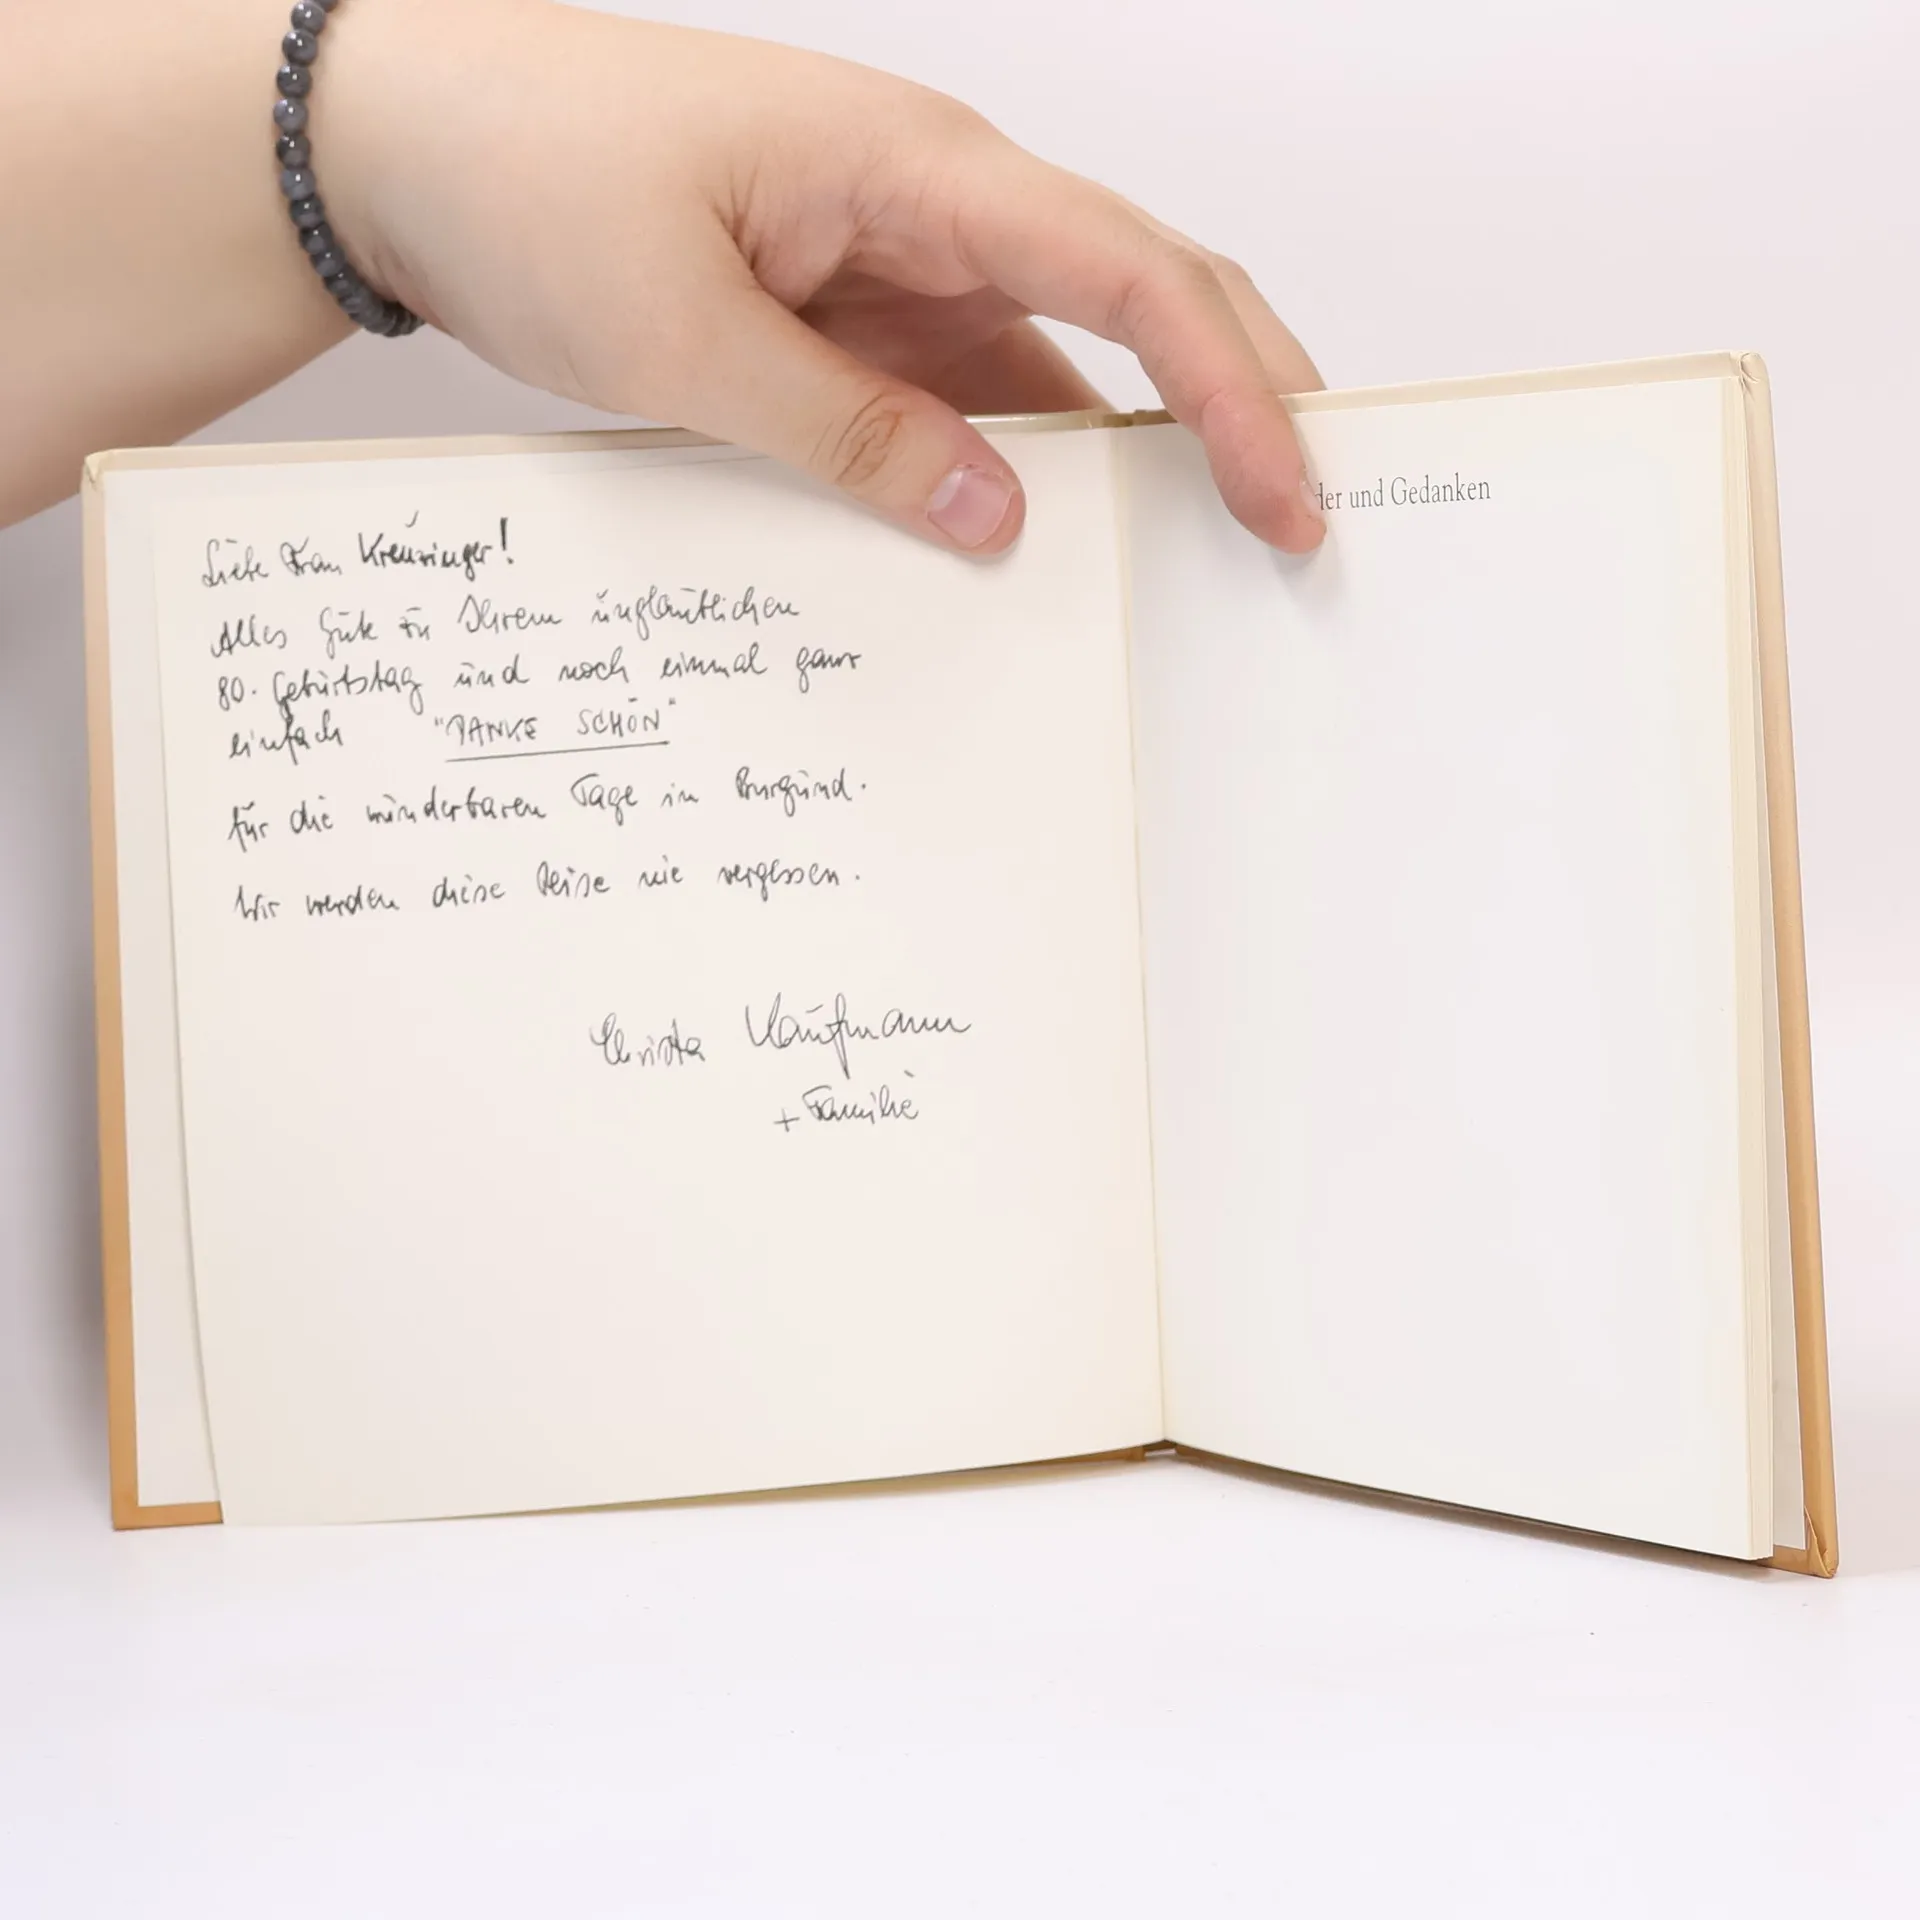 Liebe Frau Kreuzinger!
Alles Gute zu Ihrem unglaublichen
80. Geburtstag und noch einmal ganz
einfach "DANKE SCHÖN"
für die wunderbaren Tage in Burgund.
Wir werden diese Reise nie vergessen.
Christa Kaufmann
+ Familie
der und Gedanken